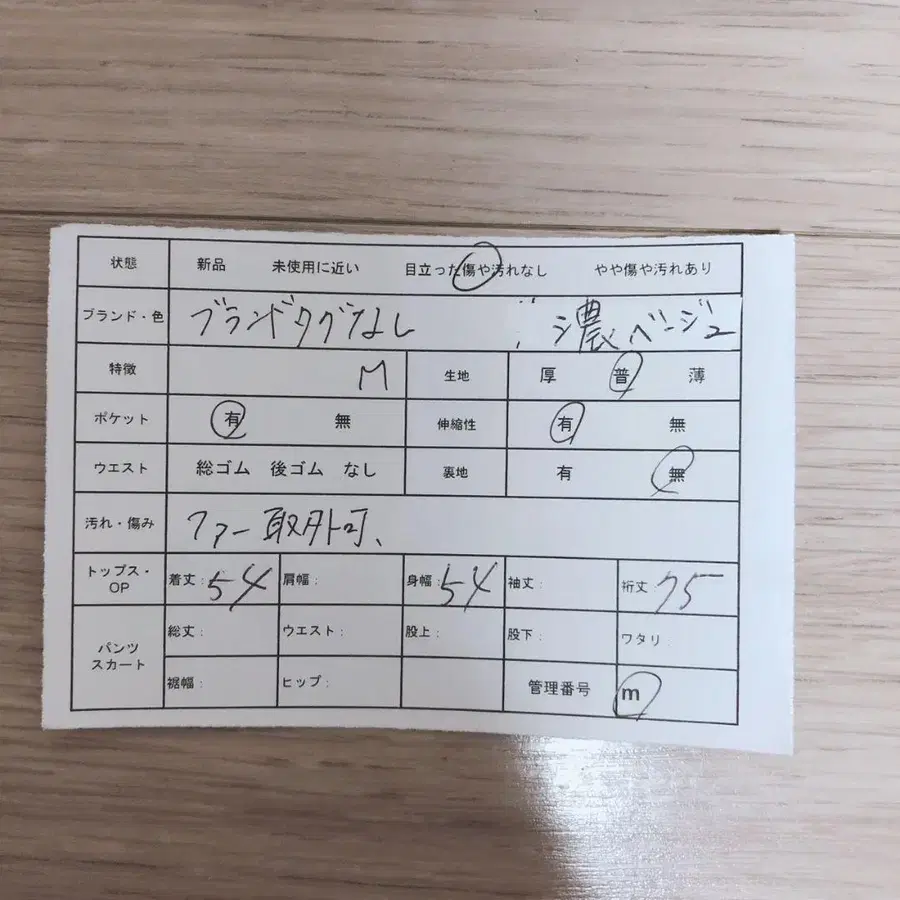 状態 新品 未使用に近い 目立った傷や汚れなし やや傷や汚れあり
ブランド・色 ブランドタグなし 濃ベージュ
特徴 M 生地 厚 普 薄
ポケット 有 無 伸縮性 有 無
ウエスト 総ゴム 後ゴム なし 裏地 有 無
汚れ・傷み ファー取外可、
トップス・OP 着丈：54 肩幅： 身幅：54 袖丈： 裄丈：75
パンツ スカート 総丈： ウエスト： 股上： 股下： ワタリ：
裾幅： ヒップ： 管理番号 m